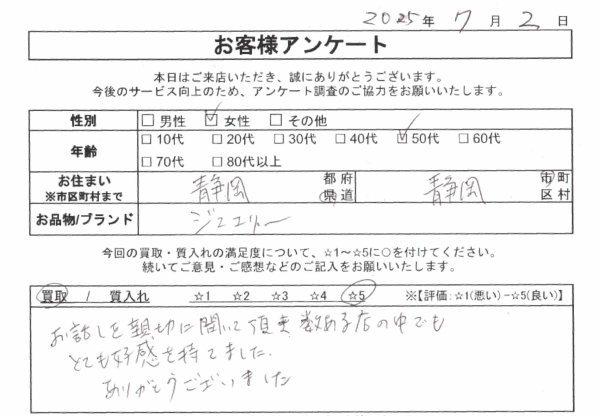 2025年 7月 2日
お客様アンケート
本日はご来店いただき、誠にありがとうございます。
今後のサービス向上のため、アンケート調査のご協力をお願いいたします。
性別 □ 男性 ☑ 女性 □ その他
年齢 □ 10代 □ 20代 □ 30代 □ 40代 ☑ 50代 □ 60代
□ 70代 □ 80代以上
お住まい ※市区町村まで 静岡 都 府 県 道 静岡 市 町 区 村
お品物/ブランド ジュエリー
今回の買取・質入れの満足度について、☆1～☆5に○を付けてください。
続いてご意見・ご感想などのご記入をお願いいたします。
買取 / 質入れ ☆1 ☆2 ☆3 ☆4 ☆5 ※【評価:☆1(悪い)－☆5(良い)】
お話しを親切に聞いて頂き 数ある店の中でも
とても好感を持てました。
ありがとうございました